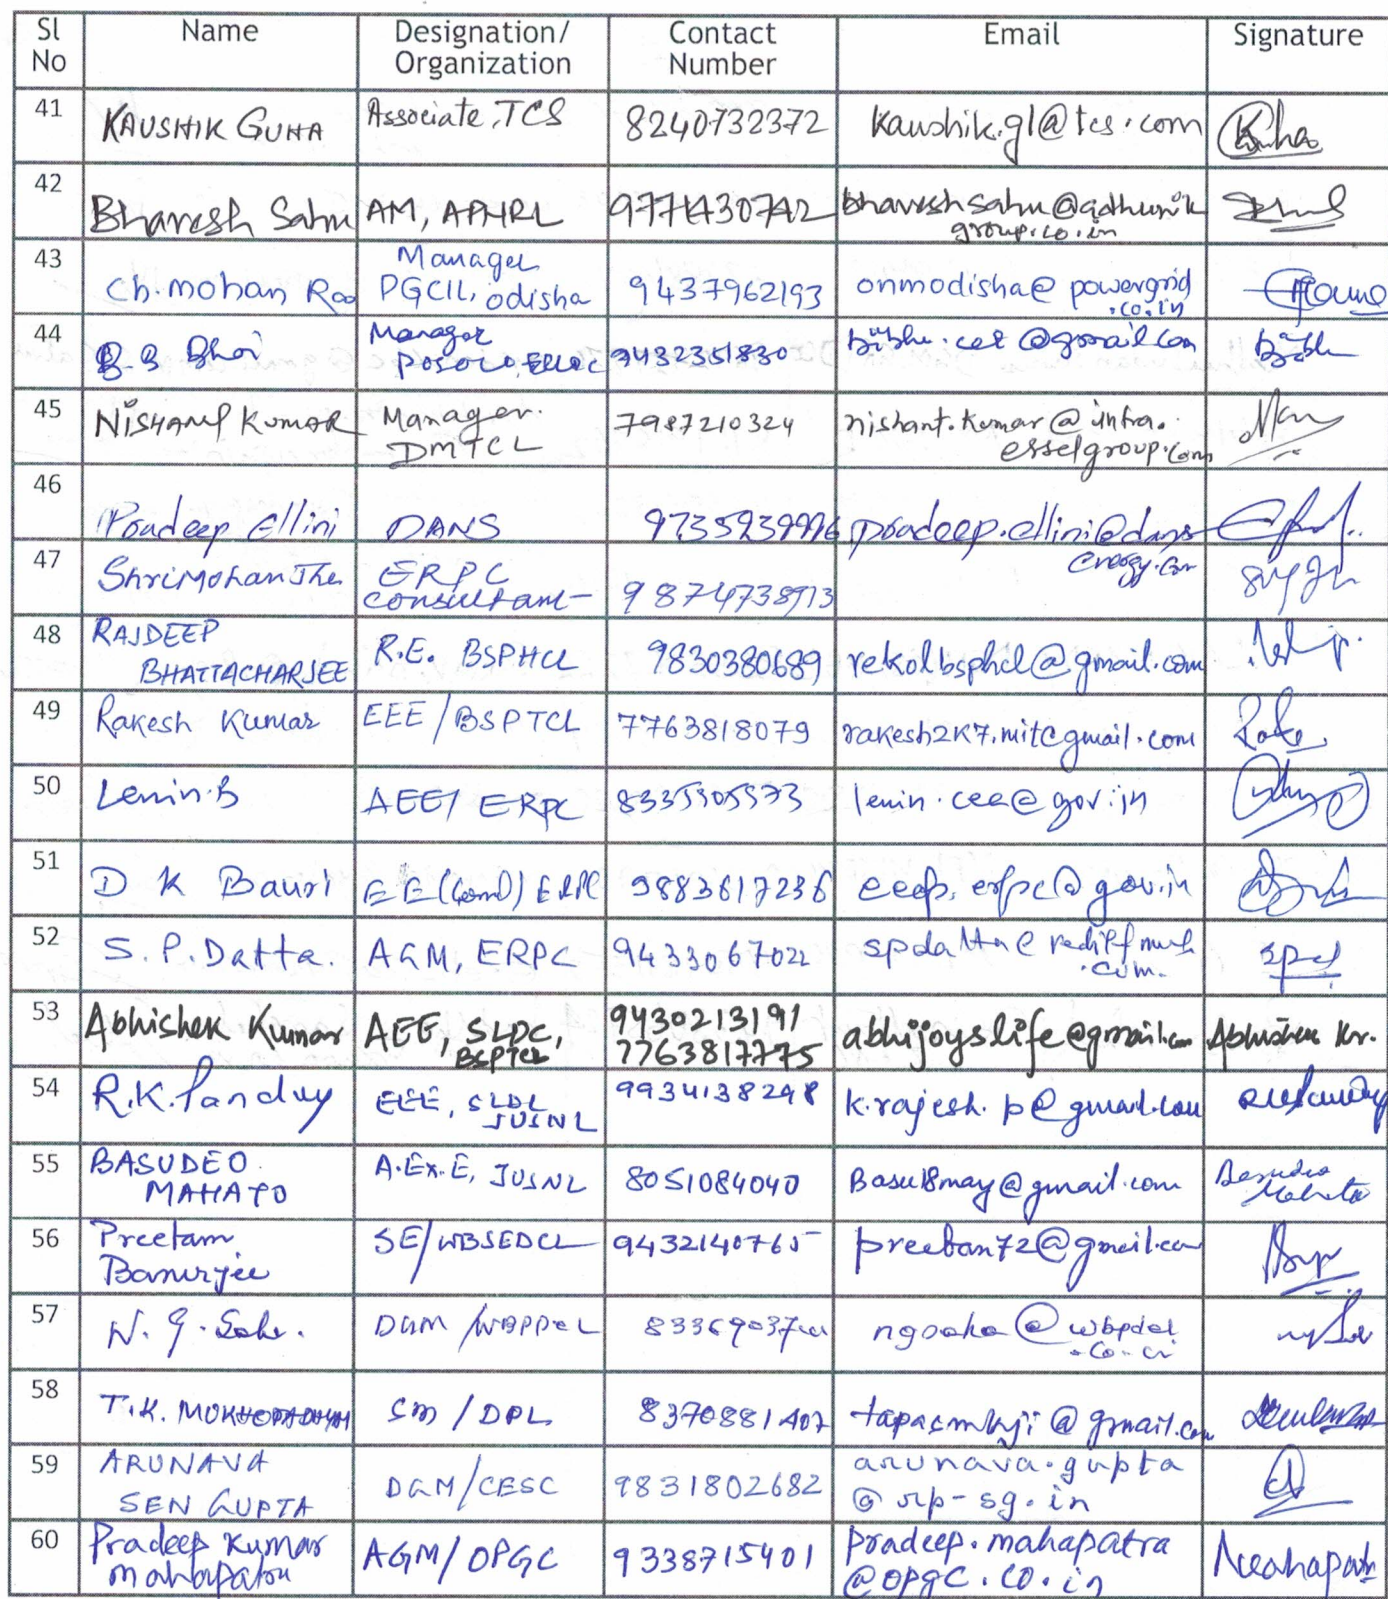 Sl No Name Designation/ Organization Contact Number Email Signature
41 KAUSHIK GUHA Associate, TCS 8240732372 kaushik.g1@tcs.com
42 Bhavesh Sahu AM, APNRL bhaveshsahu@adhunik
group.co.in
43 Ch. mohan Rao Manager
PGCIL, odisha 9437962193 onmodisha@powergrid
.co.in
44 B. B Bhoi Manager
POSOCO, ERLDC 9432351830
45 NISHANT KUMAR Manager.
DMTCL 7987210324 nishant.kumar@infra.
esselgroup.com
46 Pradeep Ellini DANS pradeep.ellini@dans
energy.com
47 Shri Mohan Jha ERPC
Consultant
48 RAJDEEP
BHATTACHARJEE R.E. BSPHCL 9830380689 rekolbsphcl@gmail.com
49 Rakesh Kumar EEE/BSPTCL 7763818079 rakesh2k7.mit@gmail.com
50 Lenin.B AEE/ ERPC lenin.cea@gov.in
51 D K Bauri EE (Com) ERPC 9883617236
52 S. P. Datta. AGM, ERPC
53 Abhishek Kumar AEE, SLDC,
BSPTCL 9430213191
7763817775 abhijoyslife@gmail.com Abhishek Kr.
54 R.K. Pandey EEE, SLDC
JUSNL 9934138298 k.rajesh.p@gmail.com
55 BASUDEO
MAHATO A.Ex.E, JUSNL 8051084040 Basu18may@gmail.com Basudeo
Mahato
56 Preetam
Banerjee SE/WBSEDCL 9432140765 preeban72@gmail.com
57 N. G. Saha. DGM /WBPDCL
58 T.K. MUKHOPADHYAY SM /DPL 8370881407 tapasmkji@gmail.com
59 ARUNAVA
SEN GUPTA DGM/CESC 9831802682 arunava.gupta
@rp-sg.in
60 Pradeep Kumar
mahapatra AGM/OPGC 9338715401 pradeep.mahapatra
@opgc.co.in